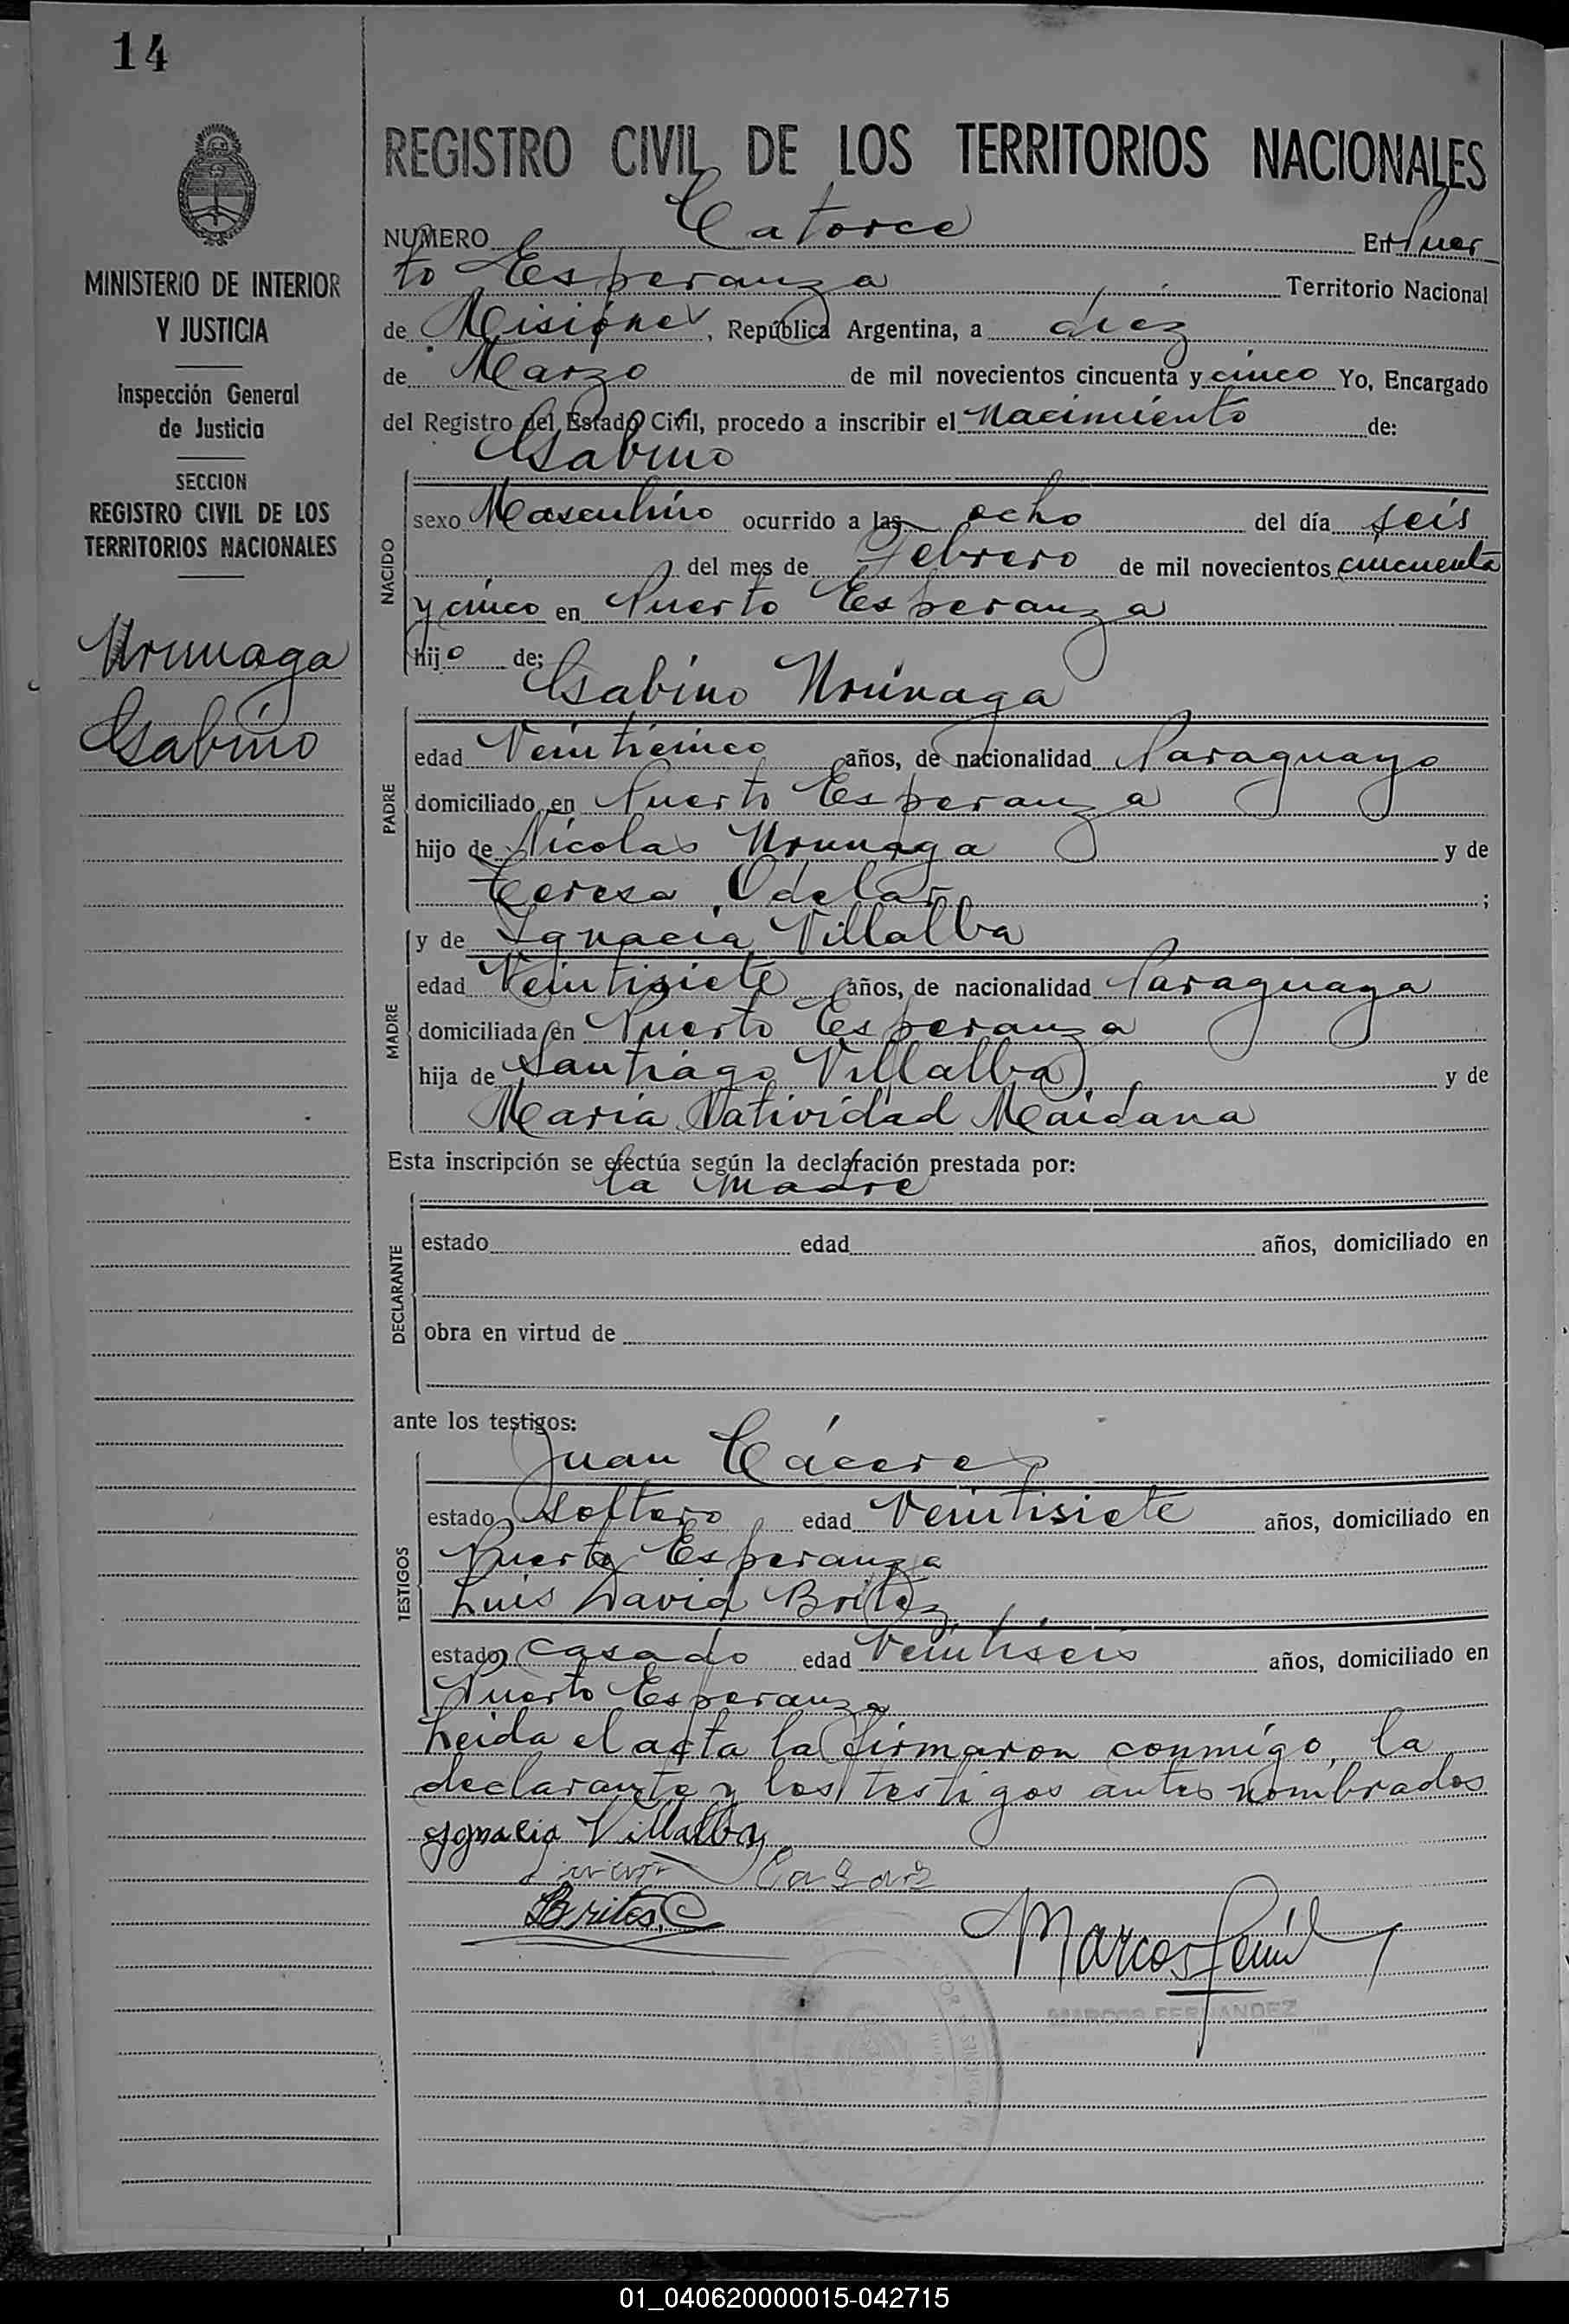 14
MINISTERIO DE INTERIOR
Y JUSTICIA
Inspección General
de Justicia
SECCION
REGISTRO CIVIL DE LOS
TERRITORIOS NACIONALES
Urunaga
Gabino
REGISTRO CIVIL DE LOS TERRITORIOS NACIONALES
NUMERO Catorce En Puer
to Esperanza Territorio Nacional
de Misiones, República Argentina, a diez
de Marzo de mil novecientos cincuenta y cinco Yo, Encargado
del Registro del Estado Civil, procedo a inscribir el Nacimiento de:
Gabino
NACIDO
sexo Masculino ocurrido a las ocho del día seis
del mes de Febrero de mil novecientos cincuenta
y cinco en Puerto Esperanza
hijo de:
Gabino Urunaga
PADRE
edad Veinticinco años, de nacionalidad Paraguayo
domiciliado en Puerto Esperanza
hijo de Nicolas Urunaga y de
Teresa ;
MADRE
y de Ignacia Villalba
edad Veintisiete años, de nacionalidad Paraguaya
domiciliada en Puerto Esperanza
hija de Santiago Villalba y de
Maria Natividad Maidana
Esta inscripción se efectúa según la declaración prestada por:
la madre
DECLARANTE
estado edad años, domiciliado en
obra en virtud de
ante los testigos:
Juan Cáceres
TESTIGOS
estado Soltero edad Veintisiete años, domiciliado en
Puerto Esperanza
Luis David Britez
estado casado edad Veintiseis años, domiciliado en
Puerto Esperanza
Leida el acta la firmaron conmigo, la
declarante y los testigos antes nombrados
Ygnacia Villalba
Brites
Marcos
MARCOS FERNANDEZ
01_040620000015-042715